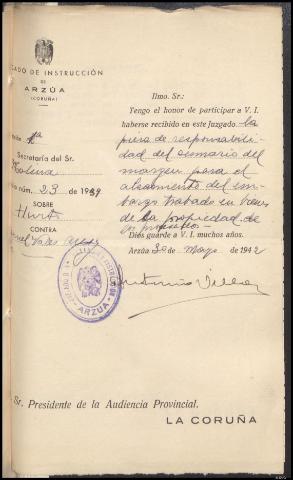 GADO DE INSTRUCCIÓN
DE
ARZÚA
(CORUÑA)
Secretaría del Sr.
núm. 23 1939
SOBRE
Hurto
CONTRA
Ilmo. Sr.:
Tengo el honor de participar a V. I.
haberse recibido en este Juzgado la
pieza de responsabili-
dad del sumario del
margen para el
alzamiento del em-
bargo trabado en bienes
de la propiedad de
Dios guarde a V. I. muchos años.
Arzúa 30 de Mayo de 1942
ARZUA
Sr. Presidente de la Audiencia Provincial.
LA CORUÑA